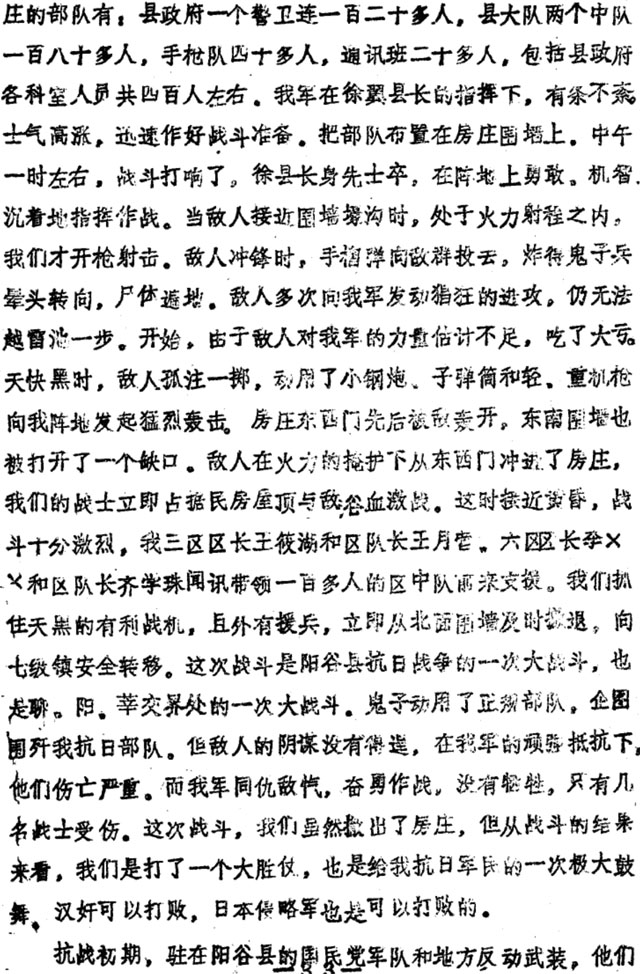 庄的部队有：县政府一个警卫连一百二十多人，县大队两个中队
一百八十多人，手枪队四十多人，通讯班二十多人，包括县政府
各科室人员共四百人左右。我军在徐翼县长的指挥下，有条不紊，
士气高涨，迅速作好战斗准备。把部队布置在房庄围墙上。中午
一时左右，战斗打响了。徐县长身先士卒，在阵地上勇敢。机智．
沉着地指挥作战。当敌人接近围墙壕沟时，处于火力射程之内，
我们才开枪射击。敌人冲锋时，手榴弹向敌群投去，炸得鬼子兵
晕头转向，尸体遍地。敌人多次向我军发动猖狂的进攻，仍无法
越雷池一步。开始，由于敌人对我军的力量估计不足，吃了大亏。
天快黑时，敌人孤注一掷，动用了小钢炮、子弹筒和轻、重机枪
向我阵地发起猛烈轰击。房庄东西门先后被敌轰开，东南围墙也
被打开了一个缺口。敌人在火力的掩护下从东西门冲进了房庄，
我们的战士立即占据民房屋顶与敌浴血激战。这时接近黄昏，战
斗十分激烈，我三区区长王筱湖和区队长王月宫、六区区长李×
×和区队长齐学珠闻讯带领一百多人的区中队前来支援。我们抓
住天黑的有利战机，且外有援兵，立即从北面围墙及时撤退，向
七级镇安全转移。这次战斗是阳谷县抗日战争的一次大战斗，也
是聊。阳。莘交界处的一次大战斗。鬼子动用了正规部队，企图
围歼我抗日部队。但敌人的阴谋没有得逞，在我军的顽强抵抗下，
他们伤亡严重。而我军同仇敌忾，奋勇作战，没有牺牲，只有几
名战士受伤。这次战斗，我们虽然撤出了房庄，但从战斗的结果
来看，我们是打了一个大胜仗，也是给我抗日军民的一次极大鼓
舞。汉奸可以打败，日本侵略军也是可以打败的。
抗战初期，驻在阳谷县的国民党军队和地方反动武装，他们